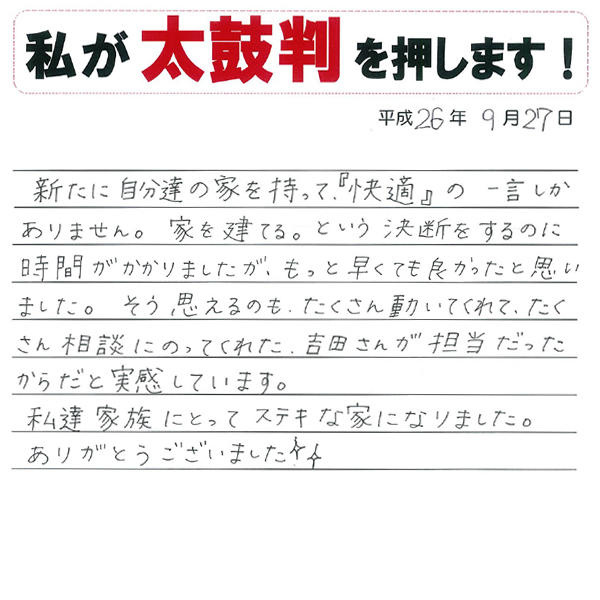 私が太鼓判を押します！
平成26年 9月27日
新たに自分達の家を持って、『快適』の 一言しか
ありません。 家を建てる。という 決断をするのに
時間がかかりましたが、もっと早くても良かったと思い
ました。 そう思えるのも、たくさん動いてくれて、たく
さん相談にのってくれた、吉田さんが担当だった
からだと実感しています。
私達家族にとってステキな家になりました。
ありがとうございました